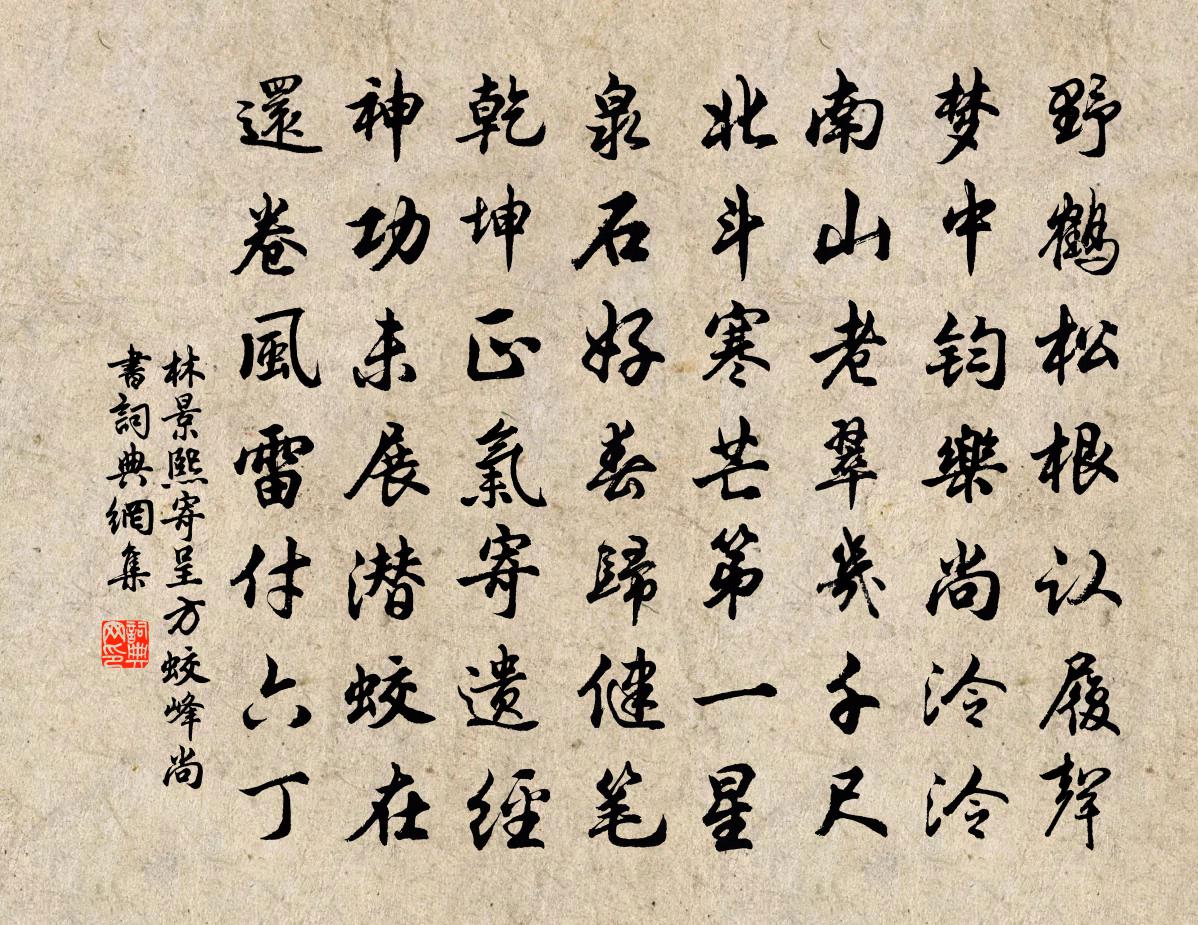 野鹤松根认履聲
梦中钧樂尚泠泠
南山老翠幾千尺
北斗寒芒第一星
泉石好春歸健笔
乾坤正氣寄遗經
神功未展潜蛟在
還卷風雷付六丁
林景熙寄呈方蛟峰尚
書詞典網集
詞典
网印